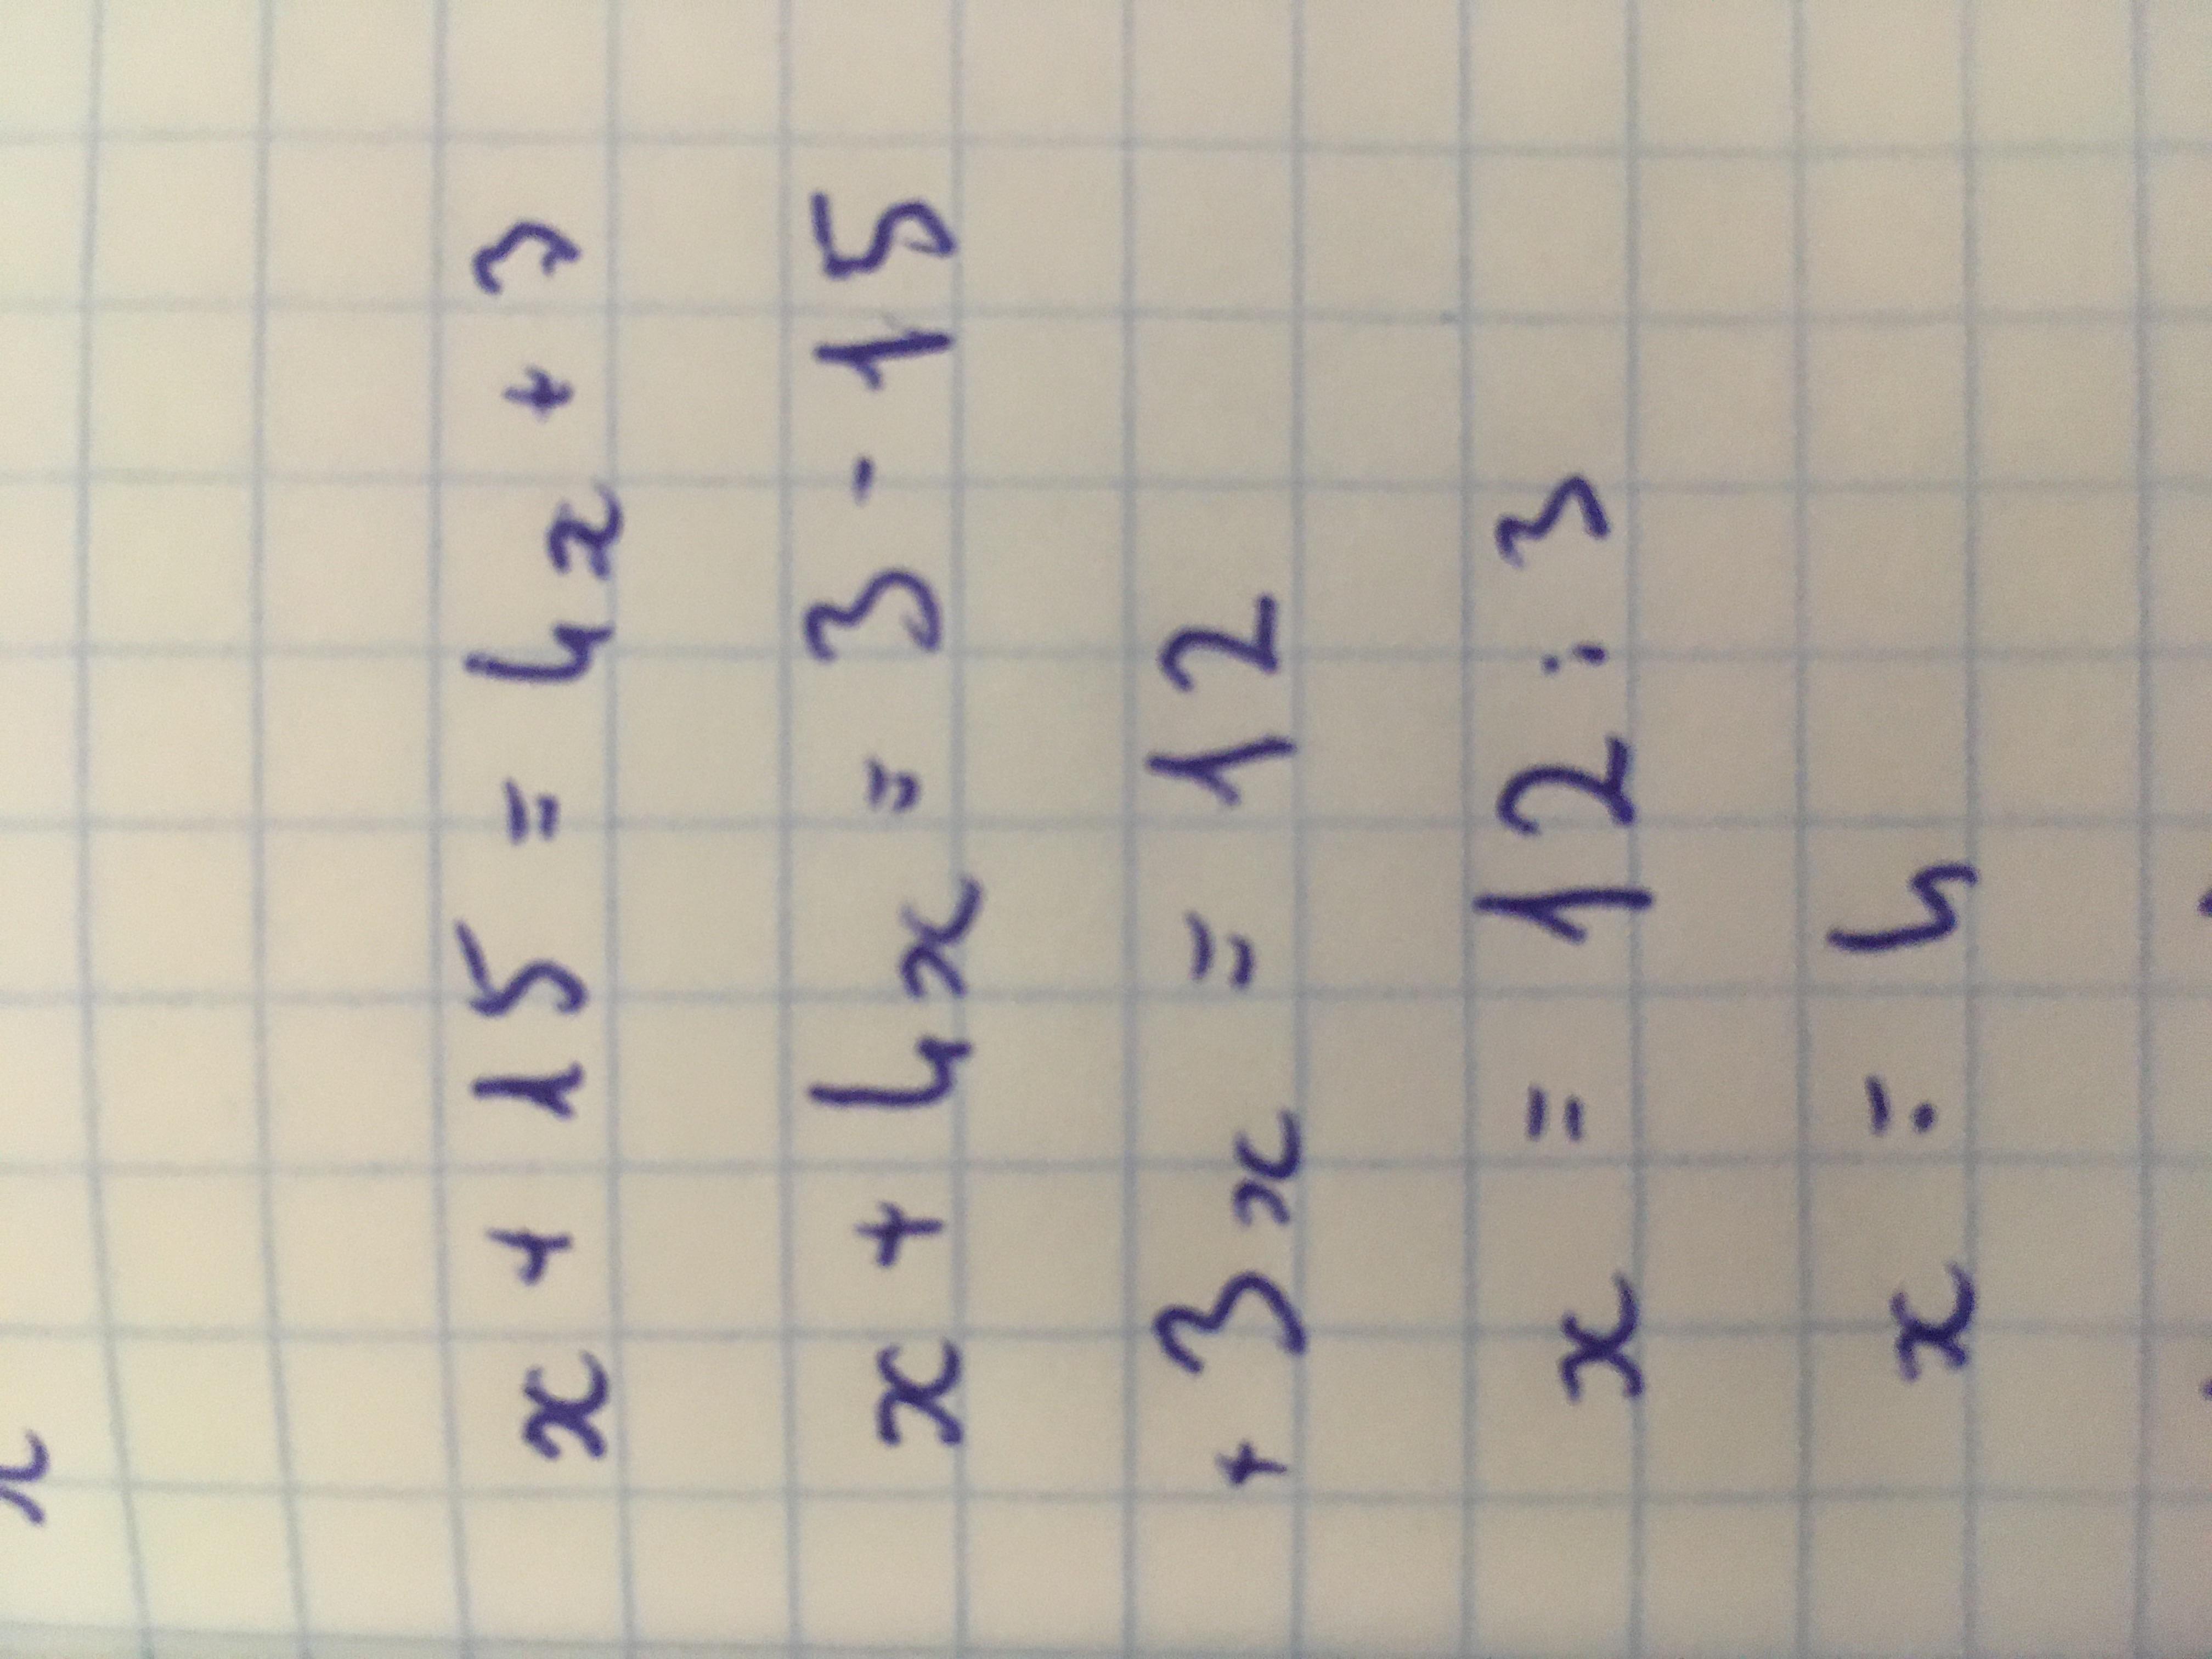 x
x + 15 = 4x + 3
x + 4x = 3 - 15
+ 3x = 12
x = 12 : 3
x = 4